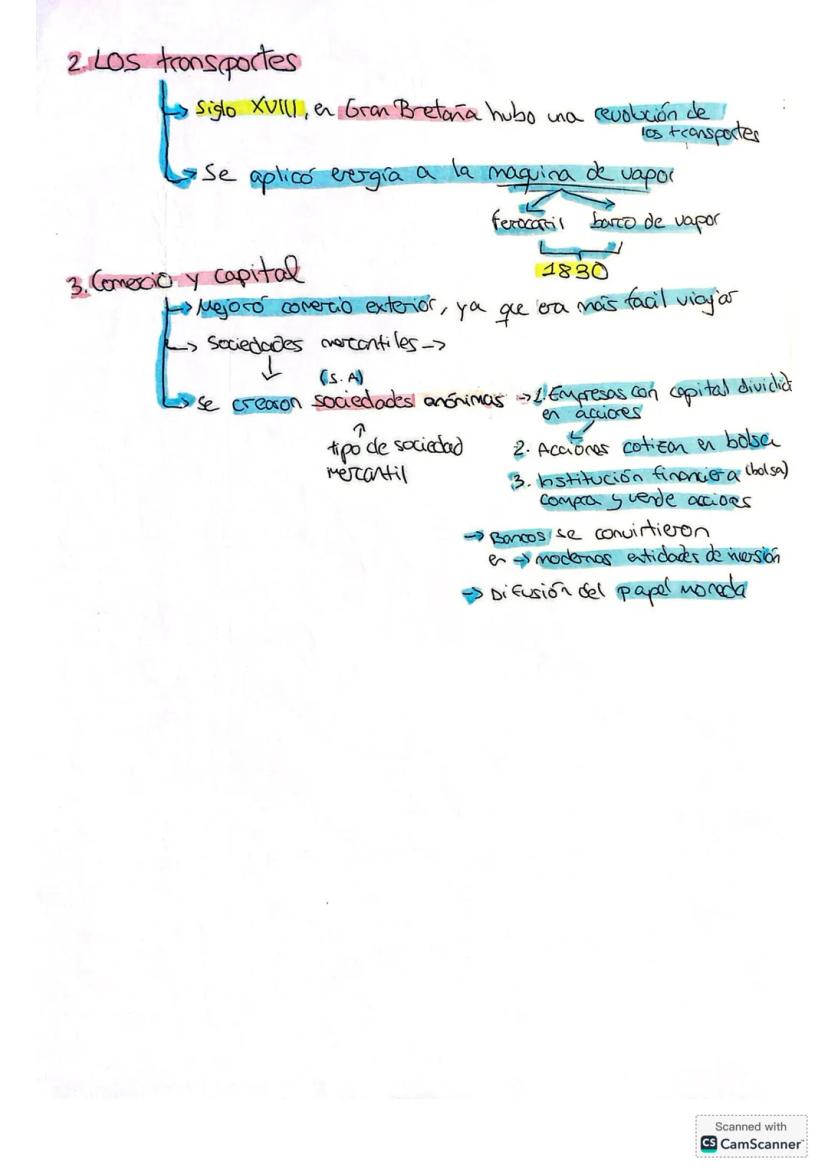 2. Los transportes
→ Siglo XVIII, en Gran Bretaña hubo una revolución de
los transportes
→ Se aplicó energía a la maquina de vapor
ferocaril barco de vapor
1830
3. Comercio y capital
→ Mejoró comercio exterior, ya que era más facil viajar
→ Sociedades mercantiles →
(S.A)
→ Se crearon sociedades anónimas → 1. Empresas con capital dividid
en acciones
tipo de sociedad
mercantil
2. Acciones cotizan en bolsa
3. Institución financiera (bolsa)
compra y vende acciones
→ Bancos se convirtieron
en → modernas entidades de inversión
→ Difusión del papel moneda
Scanned with
CS CamScanner